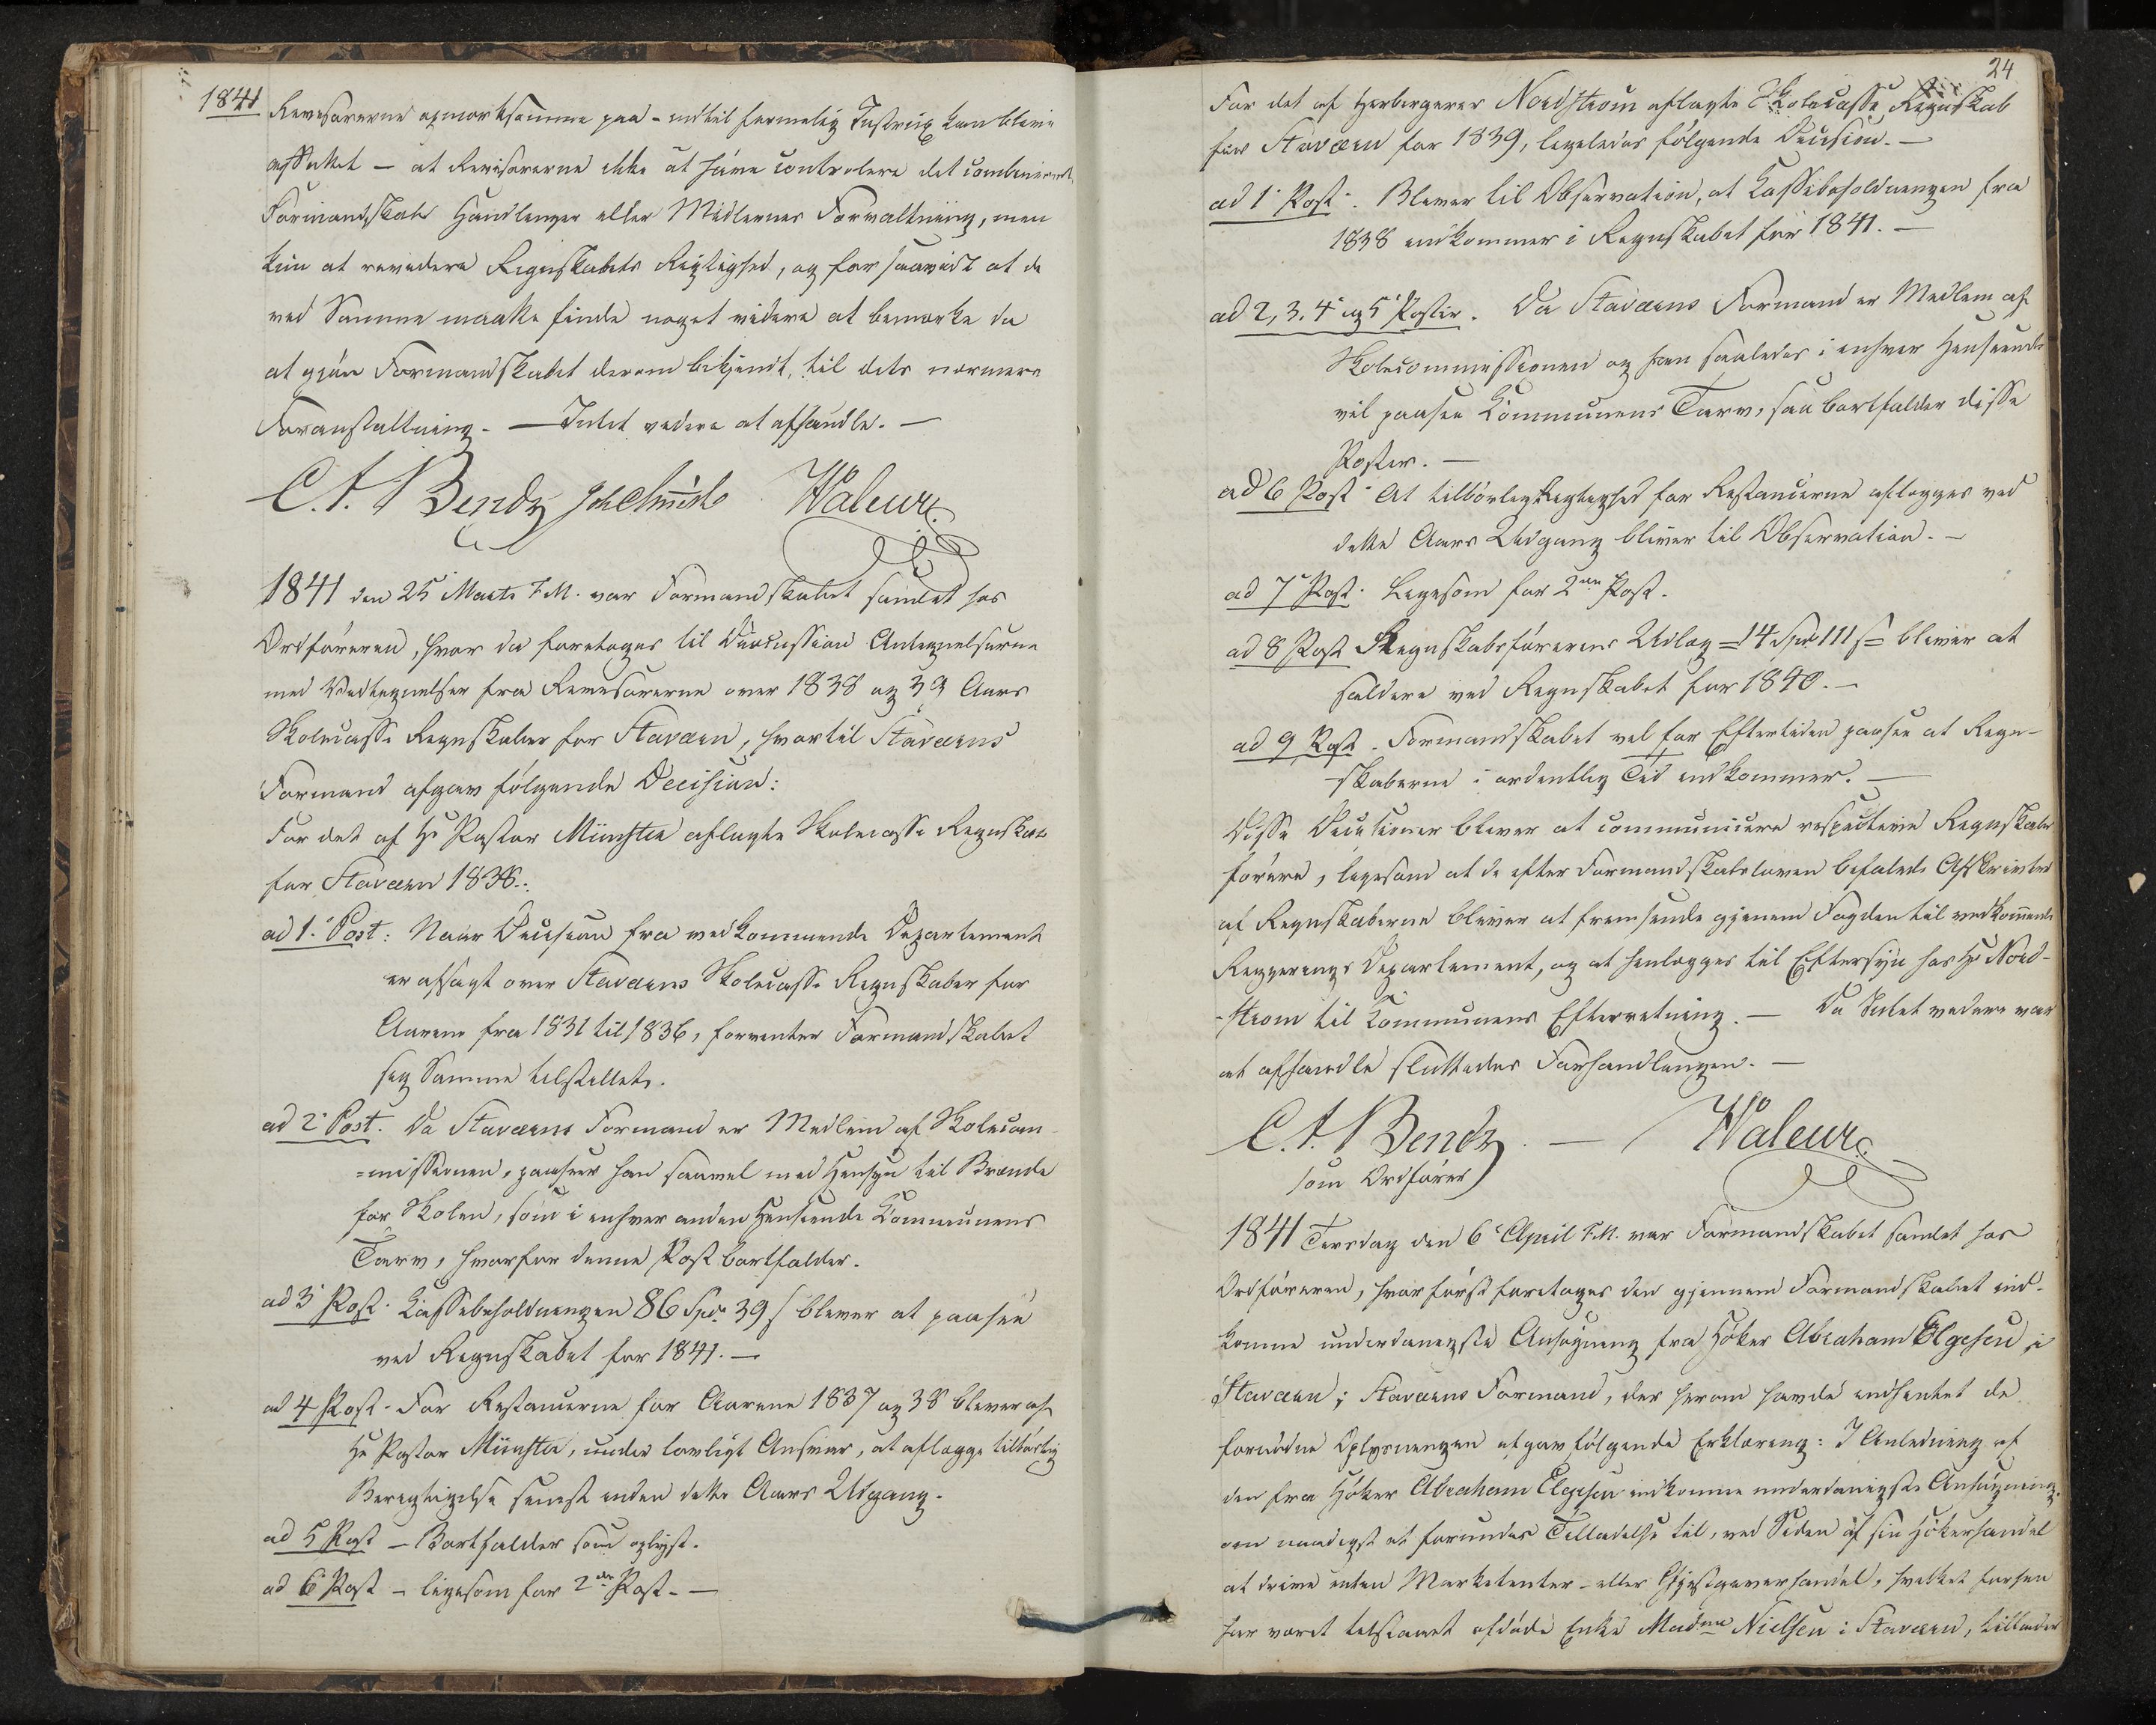 1841
Revisorerne opmærksomme paa – indtil formelig Instrux kan blive
affattet – at Revisorerne ikke at have controlere det combinerede
Formandskabs Handlinger eller Midlernes Forvaltning, men
kun at revidere Regnskabets Rigtighed, og forsaavidt at de
ved Samme maatte finde noget videre at bemærke da
at gjøre Formandskabet derom bekjendt, til dets nærmere
Foranstaltning. — Intet videre at afhandle. —
C. A. Bendz Waleur
1841 den 25 Marts F.M. var Formandskabet samlet hos
Ordføreren, hvor da foretoges til Discussion Antegnelserne
med Vedtegnelser fra Revisorerne over 1838 og 39 Aars
Skolecasse Regnskaber for Staværn, hvortil Staværns
Formand afgav følgende Decision:
For det af Hr Pastor Münster aflagte Skolecasse Regnskab
for Staværn 1838.
ad 1 Post: Naar Decision fra vedkommende Departement
er afsagt over Staværns Skolecasse Regnskaber for
Aarene fra 1831 til 1836, forventer Formandskabet
sig Samme tilstillet.
ad 2 Post. Da Staværns Formand er Medlem af Skolecom-
=missionen, paaseer han saavel med Hensyn til Brænde
for Skolen, som i enhver anden Henseende Kommunens
Tarv, hvorfor denne Post bortfalder.
ad 3 Post. Kassebeholdningen 86 Spd. 39 s bliver at paasee
ved Regnskabet for 1841. —
ad 4 Post. For Restancerne for Aarene 1837 og 38 bliver af
Hr Pastor Münster, under lovligt Ansvar, at aflægge tilbørlig
Berigtigelse senest inden dette Aars Udgang.
ad 5 Post – Bortfalder som oplyst.
ad 6 Post – ligesom for 2den Post. —
24
For det af Herbergerer Nordstrøm aflagte Skolecasse Regnskab
for Staværn for 1839, ligeledes følgende Decision. —
ad 1 Post. Bliver til Observation, at Kassebeholdningen fra
1838 indkommer i Regnskabet for 1841. —
ad 2, 3, 4 og 5 Poster. Da Staværns Formand er Medlem af
Skolecommissionen og han saaledes i enhver Henseende
vil paasee Kommunens Tarv, saa bortfalder disse
Poster. —
ad 6 Post At tilbørlig Rigtighed for Restancerne aflægges ved
dette Aars Udgang bliver til Observation. —
ad 7 Post. Ligesom for 2den Post.
ad 8 Post Regnskabsførerens Udlæg = 14 Spd 111 s = bliver at
ved Regnskabet for 1840. —
ad 9 Post. Formandskabet vil for Eftertiden paasee at Regn-
-skaberne i ordentlig Tid indkommer. —
Disse Decisioner bliver at communicere respective Regnskabs
førere, ligesom at de efter Formandskabsloven befalede Afskrivter
af Regnskaberne bliver at fremsende gjennem Fogden til vedkommende
Regjerings Departement, og at henlægges til Eftersyn hos Hr Nord-
-strøm til Kommunens Efterretning. — Da Intet videre var
at afhandle sluttedes Forhandlingen. —
C. A. Bendz. — Waleur
som Ordfører
1841 Tirsdag den 6 April F.M. var Formandskabet samlet hos
Ordføreren, hvor først foretoges den gjennem Formandskabet ind-
komne underdanigste Ansøgning fra Høker Abraham Elgesen i
Staværn; Staværns Formand, der herom havde indhentet de
fornødne Oplysninger afgav følgende Erklæring: I Anledning af
den fra Høker Abraham Elgesen indkomne underdanigste Ansøgning
om naadigst at forundes Tilladelse til, ved Siden af sin Høkerhandel
at drive enten Marketenter- eller Gjæstgiverhandel, hvilket forhen
har været tilstaaet afdøde Enke Madme Nielsen i Staværn, tillader